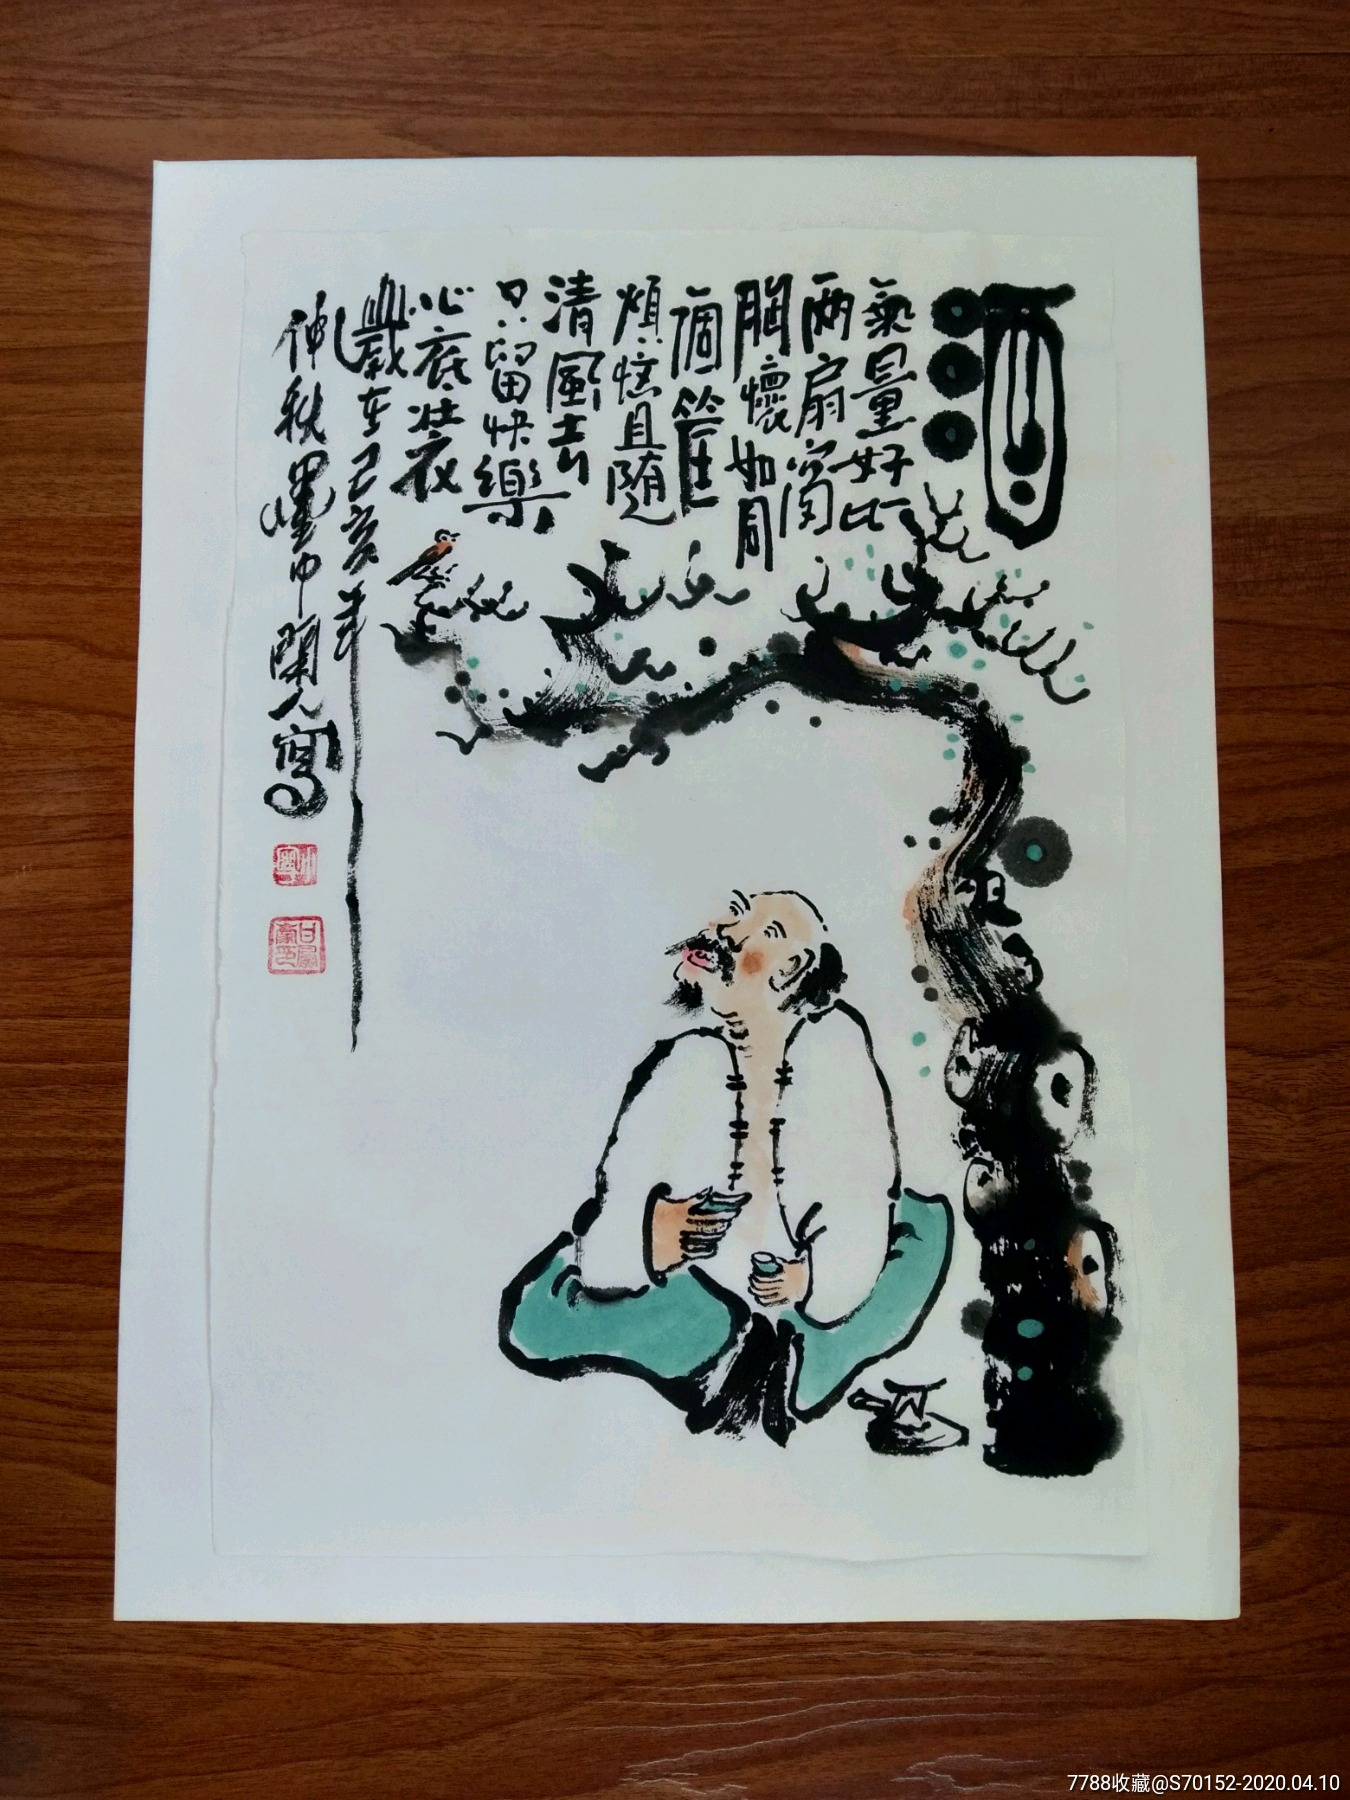 酒
氣量好比
兩扇窗
胸懷如同
一個筐
煩惱且隨
清風去
只留快樂
心底裝
歲在己亥年
仲秋墨中閑人寫
7788收藏@S70152-2020.04.10